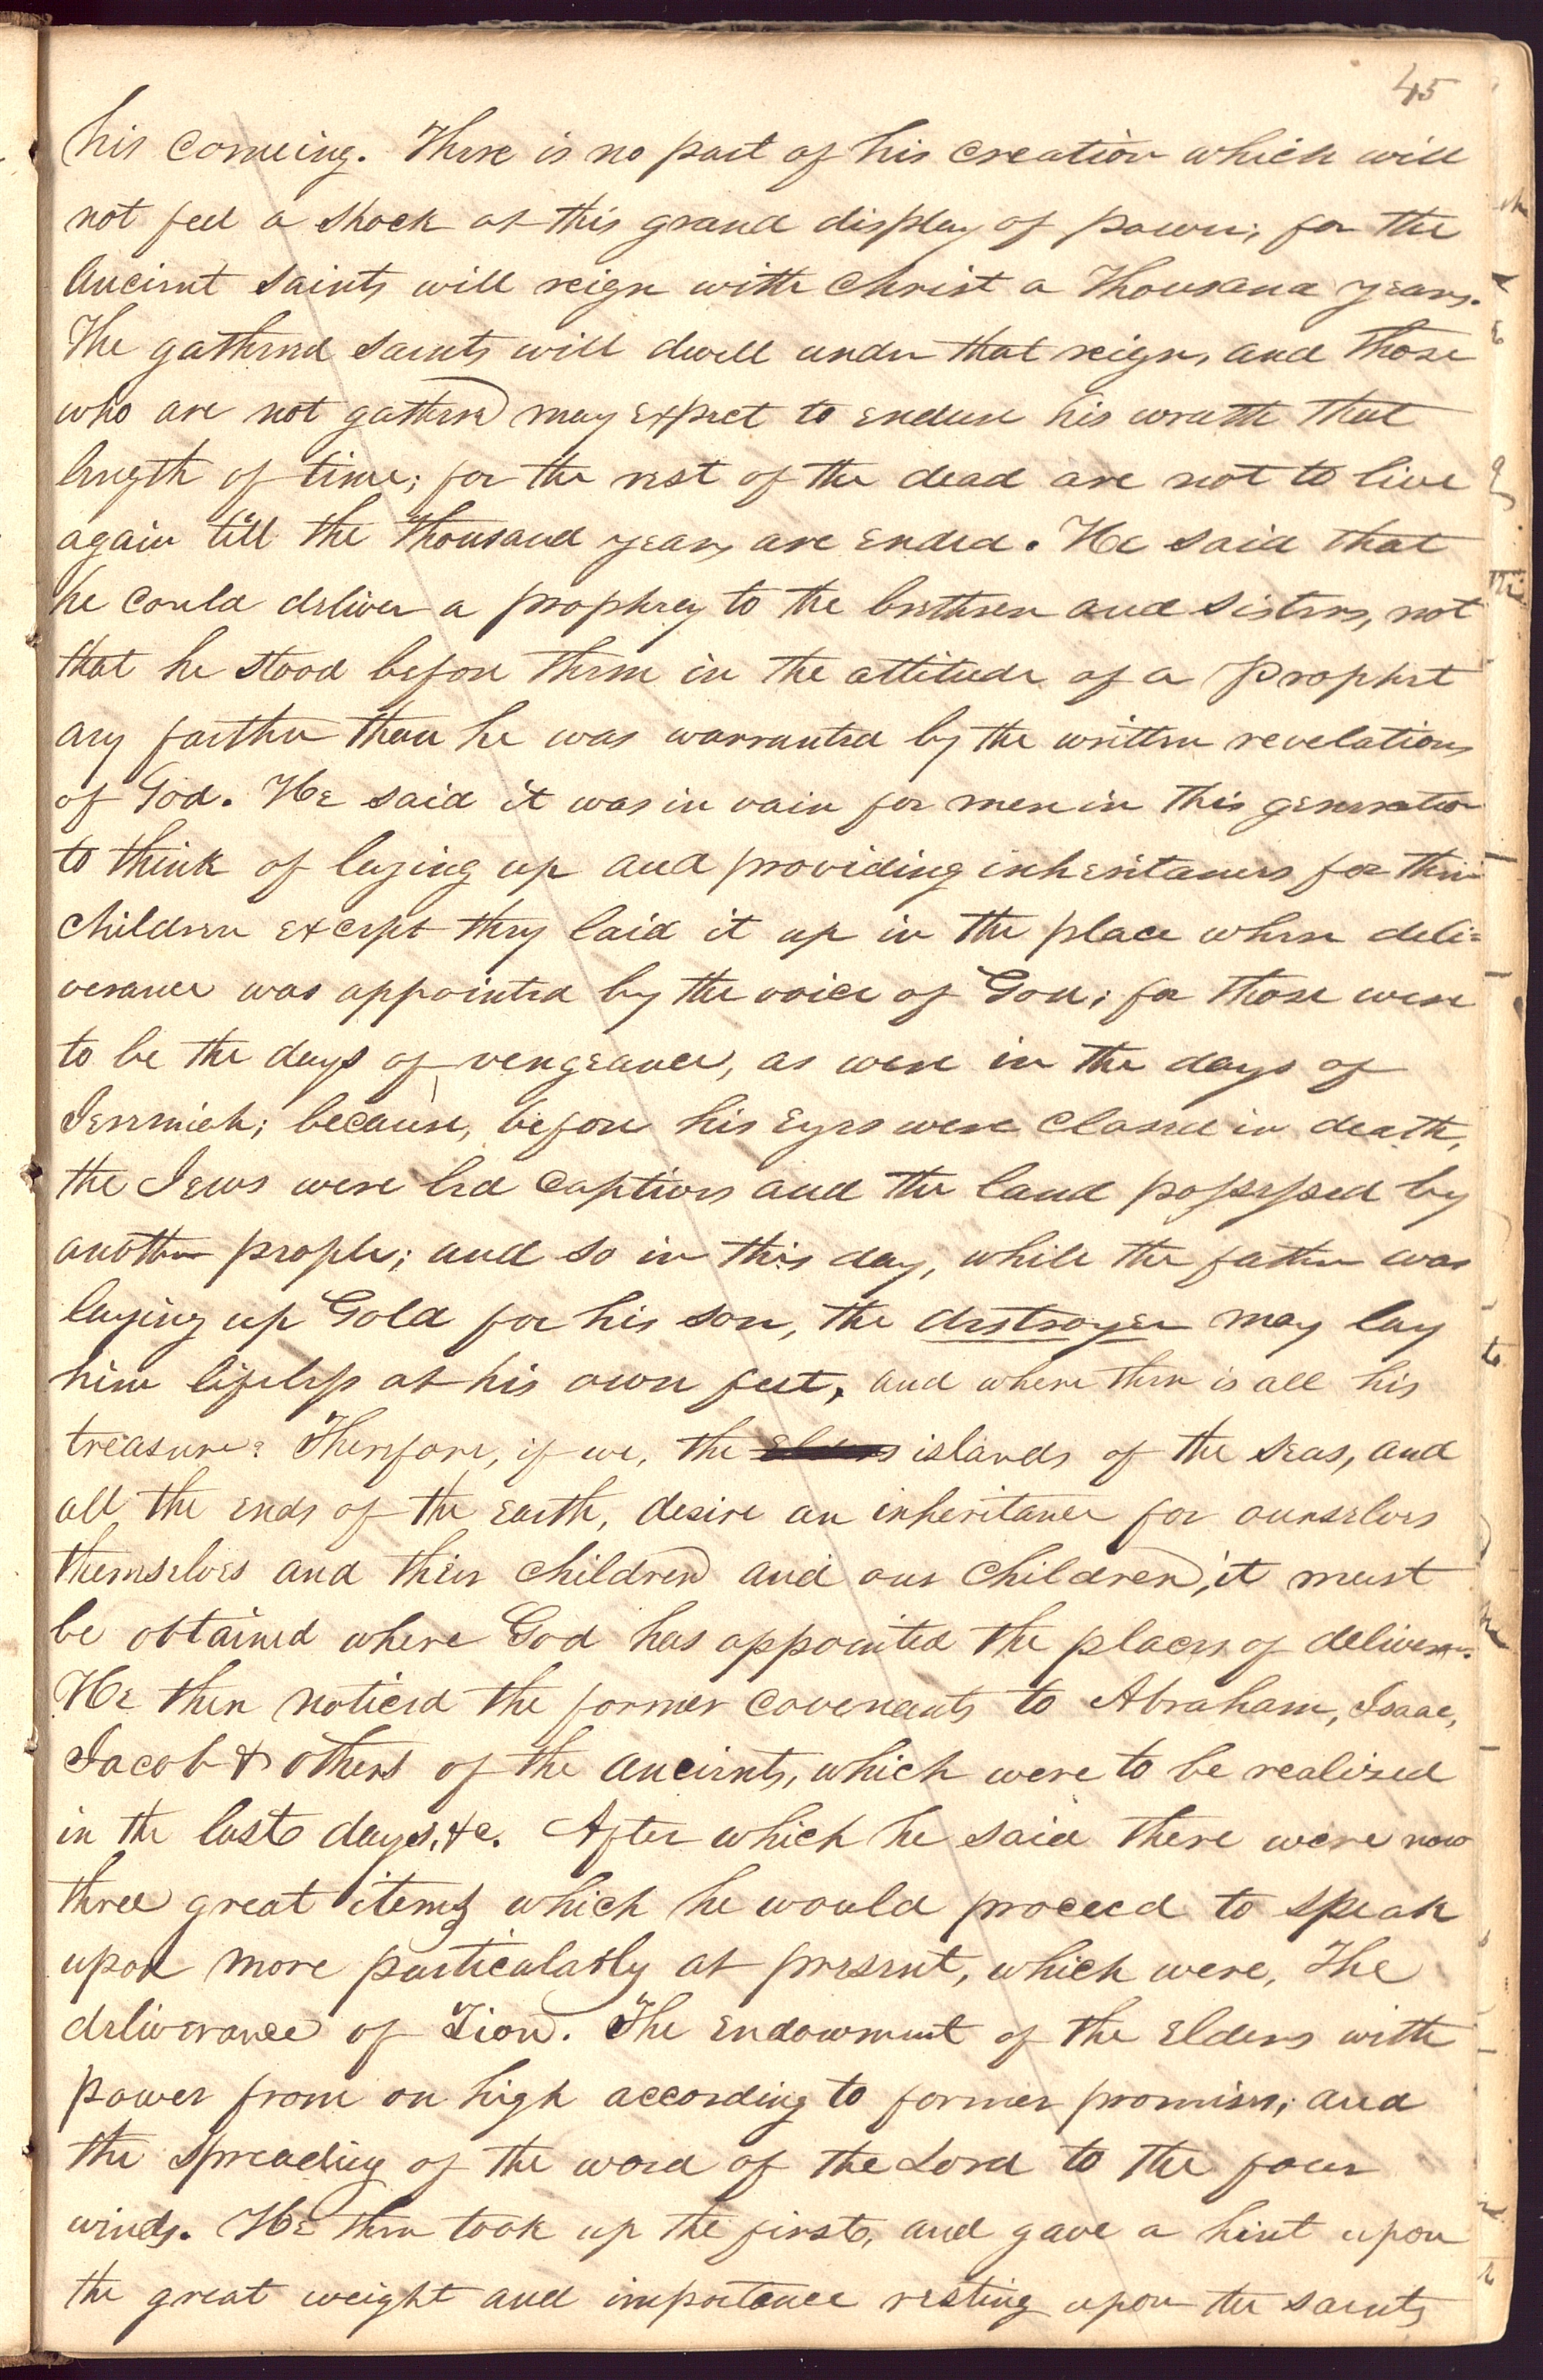 45
his comeing. There is no part of his creation which will
not feel a shock at this grand display of power; for the
ancient saints will reign with Christ a thousand years.
The gathered saints will dwell under that reign, and those
who are not gathered may expect to endure his wrath that
length of time; for the rest of the dead are not to live
again till the thousand years are ended. He said that
he could deliver a prophecy to the brethren and sisters, not
that he stood before them in the attitude of a Prophet
any farther than he was warranted by the written revelations
of God. He said it was in vain for men in this generation
to think of laying up and providing inheritances for their
children except they laid it up in the place where deli=
verance was appointed by the voice of God; for those were
to be the days of vengeance, as were in the days of
Jeremiah; because, before his eyes were closed in death,
the Jews were led captives and the land possessed by
another people; and so in this day, while the father was
laying up Gold for his son, the destroyer may lay
him lifeless at his own feet, and where then is all his
treasure? Therefore, if we, the Elders islands of the seas, and
all the ends of the earth, desire an inheritance for ourselves
themselves and their children and our children, it must
be obtained where God has appointed the places of deliverance.
He then noticed the former covenants to Abraham, Isaac,
Jacob & others of the ancients, which were to be realized
in the last days, &c. After which he said there were now
three great items which he would proceed to speak
upon more particularly at present, which were, The
deliverance of Zion. The endowment of the Elders with
power from on high according to former promises; and
the spreading of the word of the Lord to the four
winds. He then took up the first, and gave a hint upon
the great weight and importance resting upon the saints